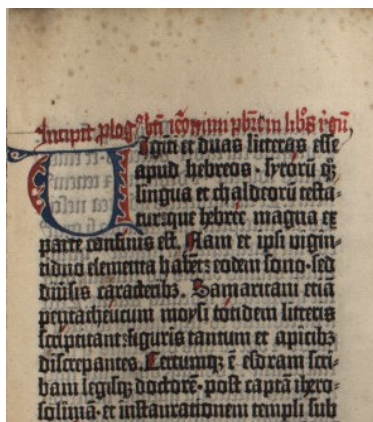 Incipit plog⁹ bti ieronimi pbri in libros regū,
Viginti et duas litteras esse
apud hebreos · syrorū qꝫ
lingua et chaldeorū testa-
tur: que hebree magna ex
parte confinis est. Nam et ipsi vigin-
tiduo elementa habēt: eodem sono · sed
diūsis caracteribꝫ. Samaritani etiā
pentatheucum moysi totidem litteris
scriptitant: figuris tantum et apicibꝫ
discrepantes. Certumqꝫ ē esdram scri-
bam legisqꝫ doctorē · post captā ihero-
solimā · et instaurationem templi sub